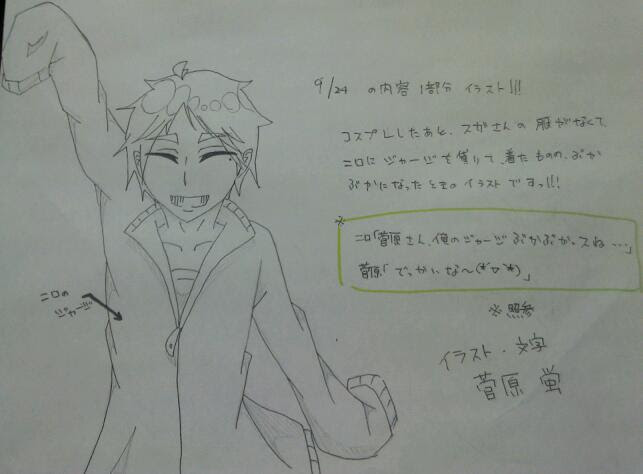 9/24 の内容 1部分 イラスト!!!
コスプレしたあと、スガさんの 服がなくて、
ニロに ジャージを借りて、着たものの、ぶか
ぶかになったときの イラスト ですっ!!!
※
ニロ「菅原さん、俺のジャージ ぶかぶかっスね…」
菅原「でっかいな～(*´▽`*)」
※ 照参
ニロの
ジャージ
イラスト・文字
菅原 蛍